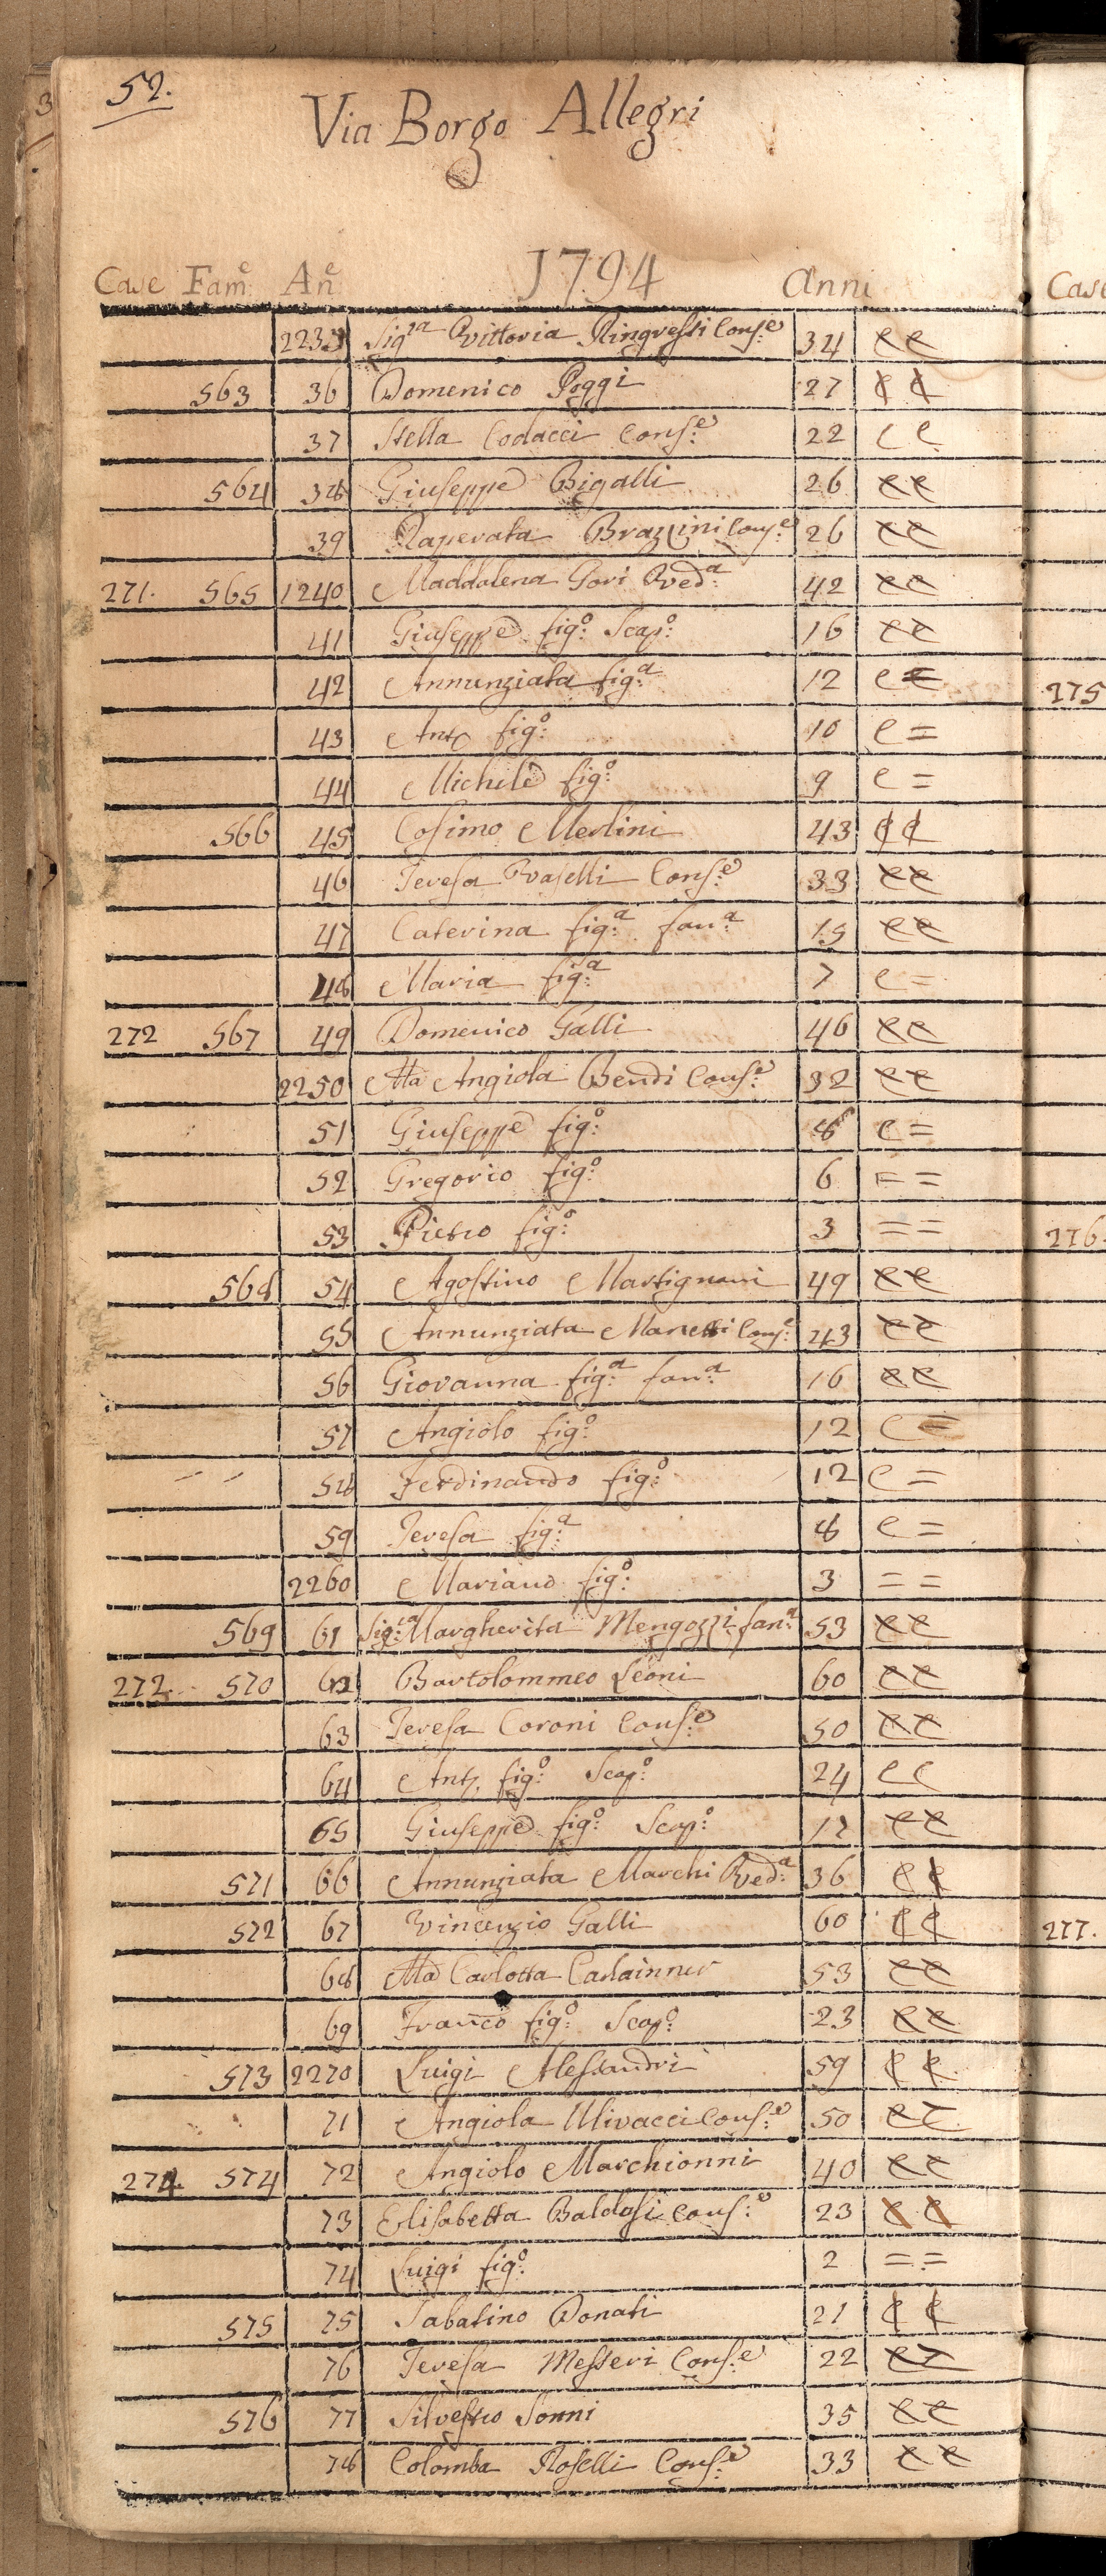 3
52.
Via Borgo Allegri
1794
Case Fam.e An.e Anni
2235 Sig.ra Vittoria Ringressi Cons.e 34 e e
563 36 Domenico Poggi 27 e e
37 Stella Codacci Cons.e 22 e e
564 38 Giuseppe Bigalli 26 e e
39 Raperata Brazzini Cons.e 26 e e
271. 565 1240 Maddalena Gori Ved.a 42 e e
41 Giuseppe fig.o Scap.o 16 e e
42 Annunziata fig.a 12 e =
43 Ant.o fig.o 10 e =
44 Michele fig.o 9 e =
566 45 Cosimo Merlini 43 e e
46 Teresa Vaselli Cons.e 33 e e
47 Caterina fig.a fan.a 15 e e
48 Maria fig.a 7 e =
272 567 49 Domenico Galli 46 e e
2250 Ma Angiola Bendi Cons.e 32 e e
51 Giuseppe fig.o 8 e =
52 Gregorio fig.o 6 = =
53 Pietro fig.o 3 = =
568 54 Agostino Martignoni 49 e e
55 Annunziata Manetti Cons.e 43 e e
56 Giovanna fig.a fan.a 16 e e
57 Angiolo fig.o 12 e =
58 Ferdinando fig.o 12 e =
59 Teresa fig.a 8 e =
2260 Mariano fig.o 3 = =
569 61 Sig.ra Margherita Mengozzi fan.a 53 e e
272. 570 62 Bartolommeo Leoni 60 e e
63 Teresa Coroni Cons.e 50 e e
64 Ant.o fig.o Scap.o 24 e e
65 Giuseppe fig.o Scap.o 17 e e
571 66 Annunziata Marchi Ved.a 36 e e
572 67 Vincenzio Galli 60 e e
68 Ma Carlotta Carlainner 53 e e
69 Franco fig.o Scap.o 23 e e
573 2270 Luigi Alessandri 59 e e
71 Angiola Ulivacci Cons.e 50 e e
274. 574 72 Angiolo Marchionni 40 e e
73 Elisabetta Baldasi Cons.e 23 e e
74 Luigi fig.o 2 = =
575 75 Sabatino Donati 21 e e
76 Teresa Messeri Cons.e 22 e e
576 77 Silvestro Sonni 35 e e
78 Colomba Roselli Cons.e 33 e e
Case
275
276.
277.